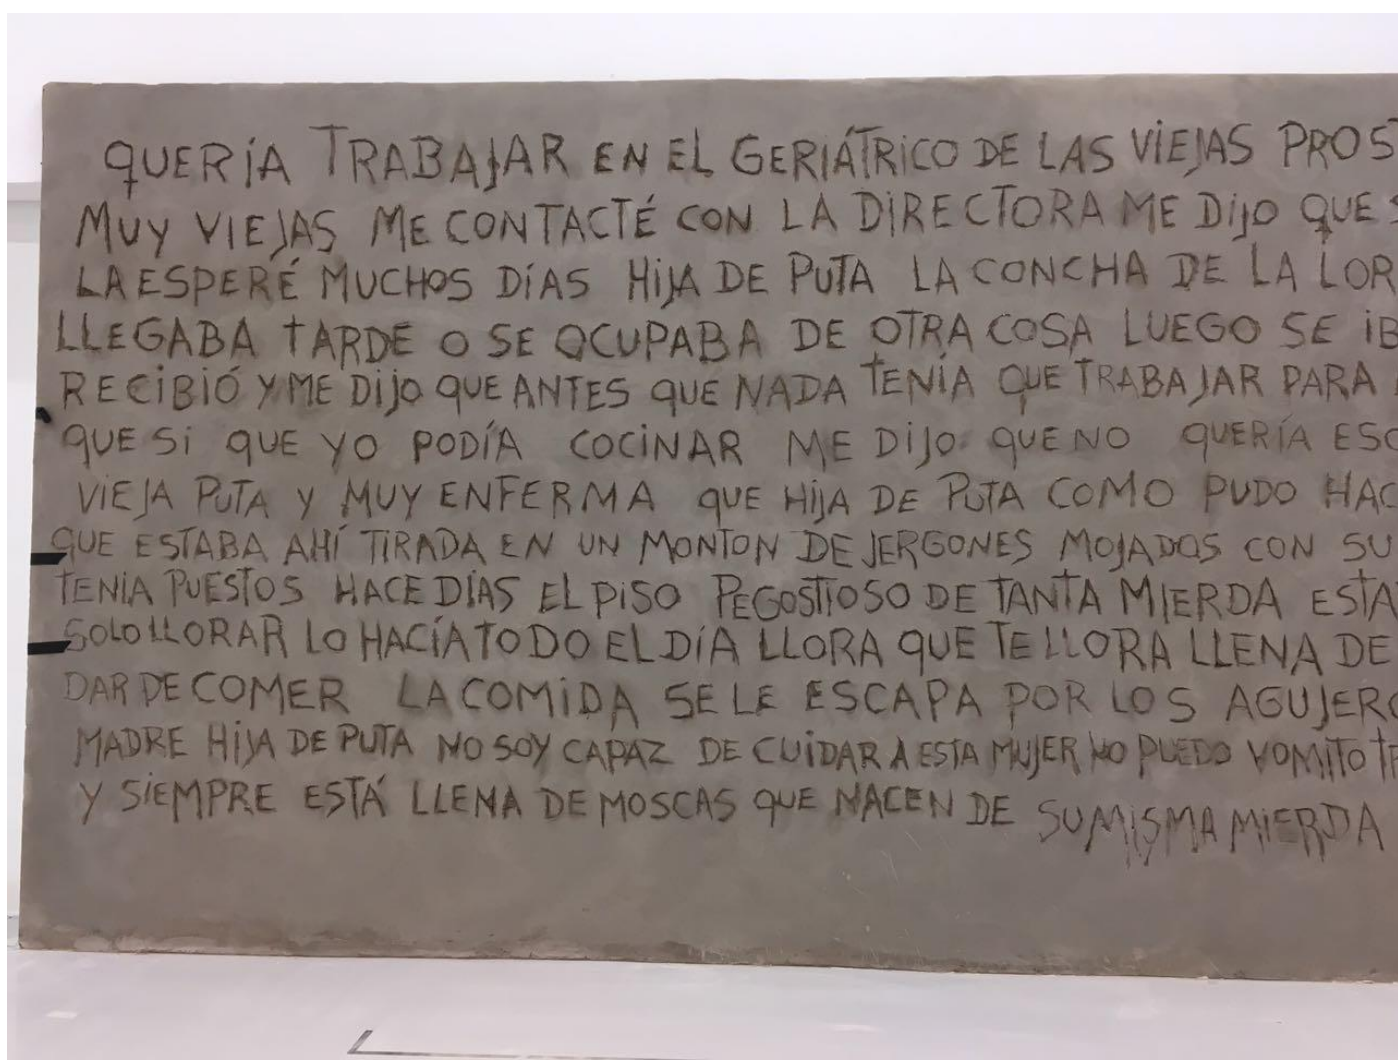 QUERÍA TRABAJAR EN EL GERIÁTRICO DE LAS VIEJAS PROST
MUY VIEJAS ME CONTACTÉ CON LA DIRECTORA ME DIJO QUE
LA ESPERÉ MUCHOS DÍAS HIJA DE PUTA LA CONCHA DE LA LOR
LLEGABA TARDE O SE OCUPABA DE OTRA COSA LUEGO SE IB
RECIBIÓ Y ME DIJO QUE ANTES QUE NADA TENÍA QUE TRABAJAR PARA
QUE SI QUE YO PODÍA COCINAR ME DIJO QUE NO QUERÍA ESC
VIEJA PUTA Y MUY ENFERMA QUE HIJA DE PUTA COMO PUDO HAC
QUE ESTABA AHÍ TIRADA EN UN MONTON DE JERGONES MOJADOS CON SU
TENIA PUESTOS HACE DÍAS EL PISO PEGOSTIOSO DE TANTA MIERDA ESTA
SOLO LLORAR LO HACÍA TODO EL DÍA LLORA QUE TE LLORA LLENA DE
DAR DE COMER LA COMIDA SE LE ESCAPA POR LOS AGUJERO
MADRE HIJA DE PUTA NO SOY CAPAZ DE CUIDAR A ESTA MUJER NO PUEDO VOMITO
Y SIEMPRE ESTÁ LLENA DE MOSCAS QUE NACEN DE SU MISMA MIERDA